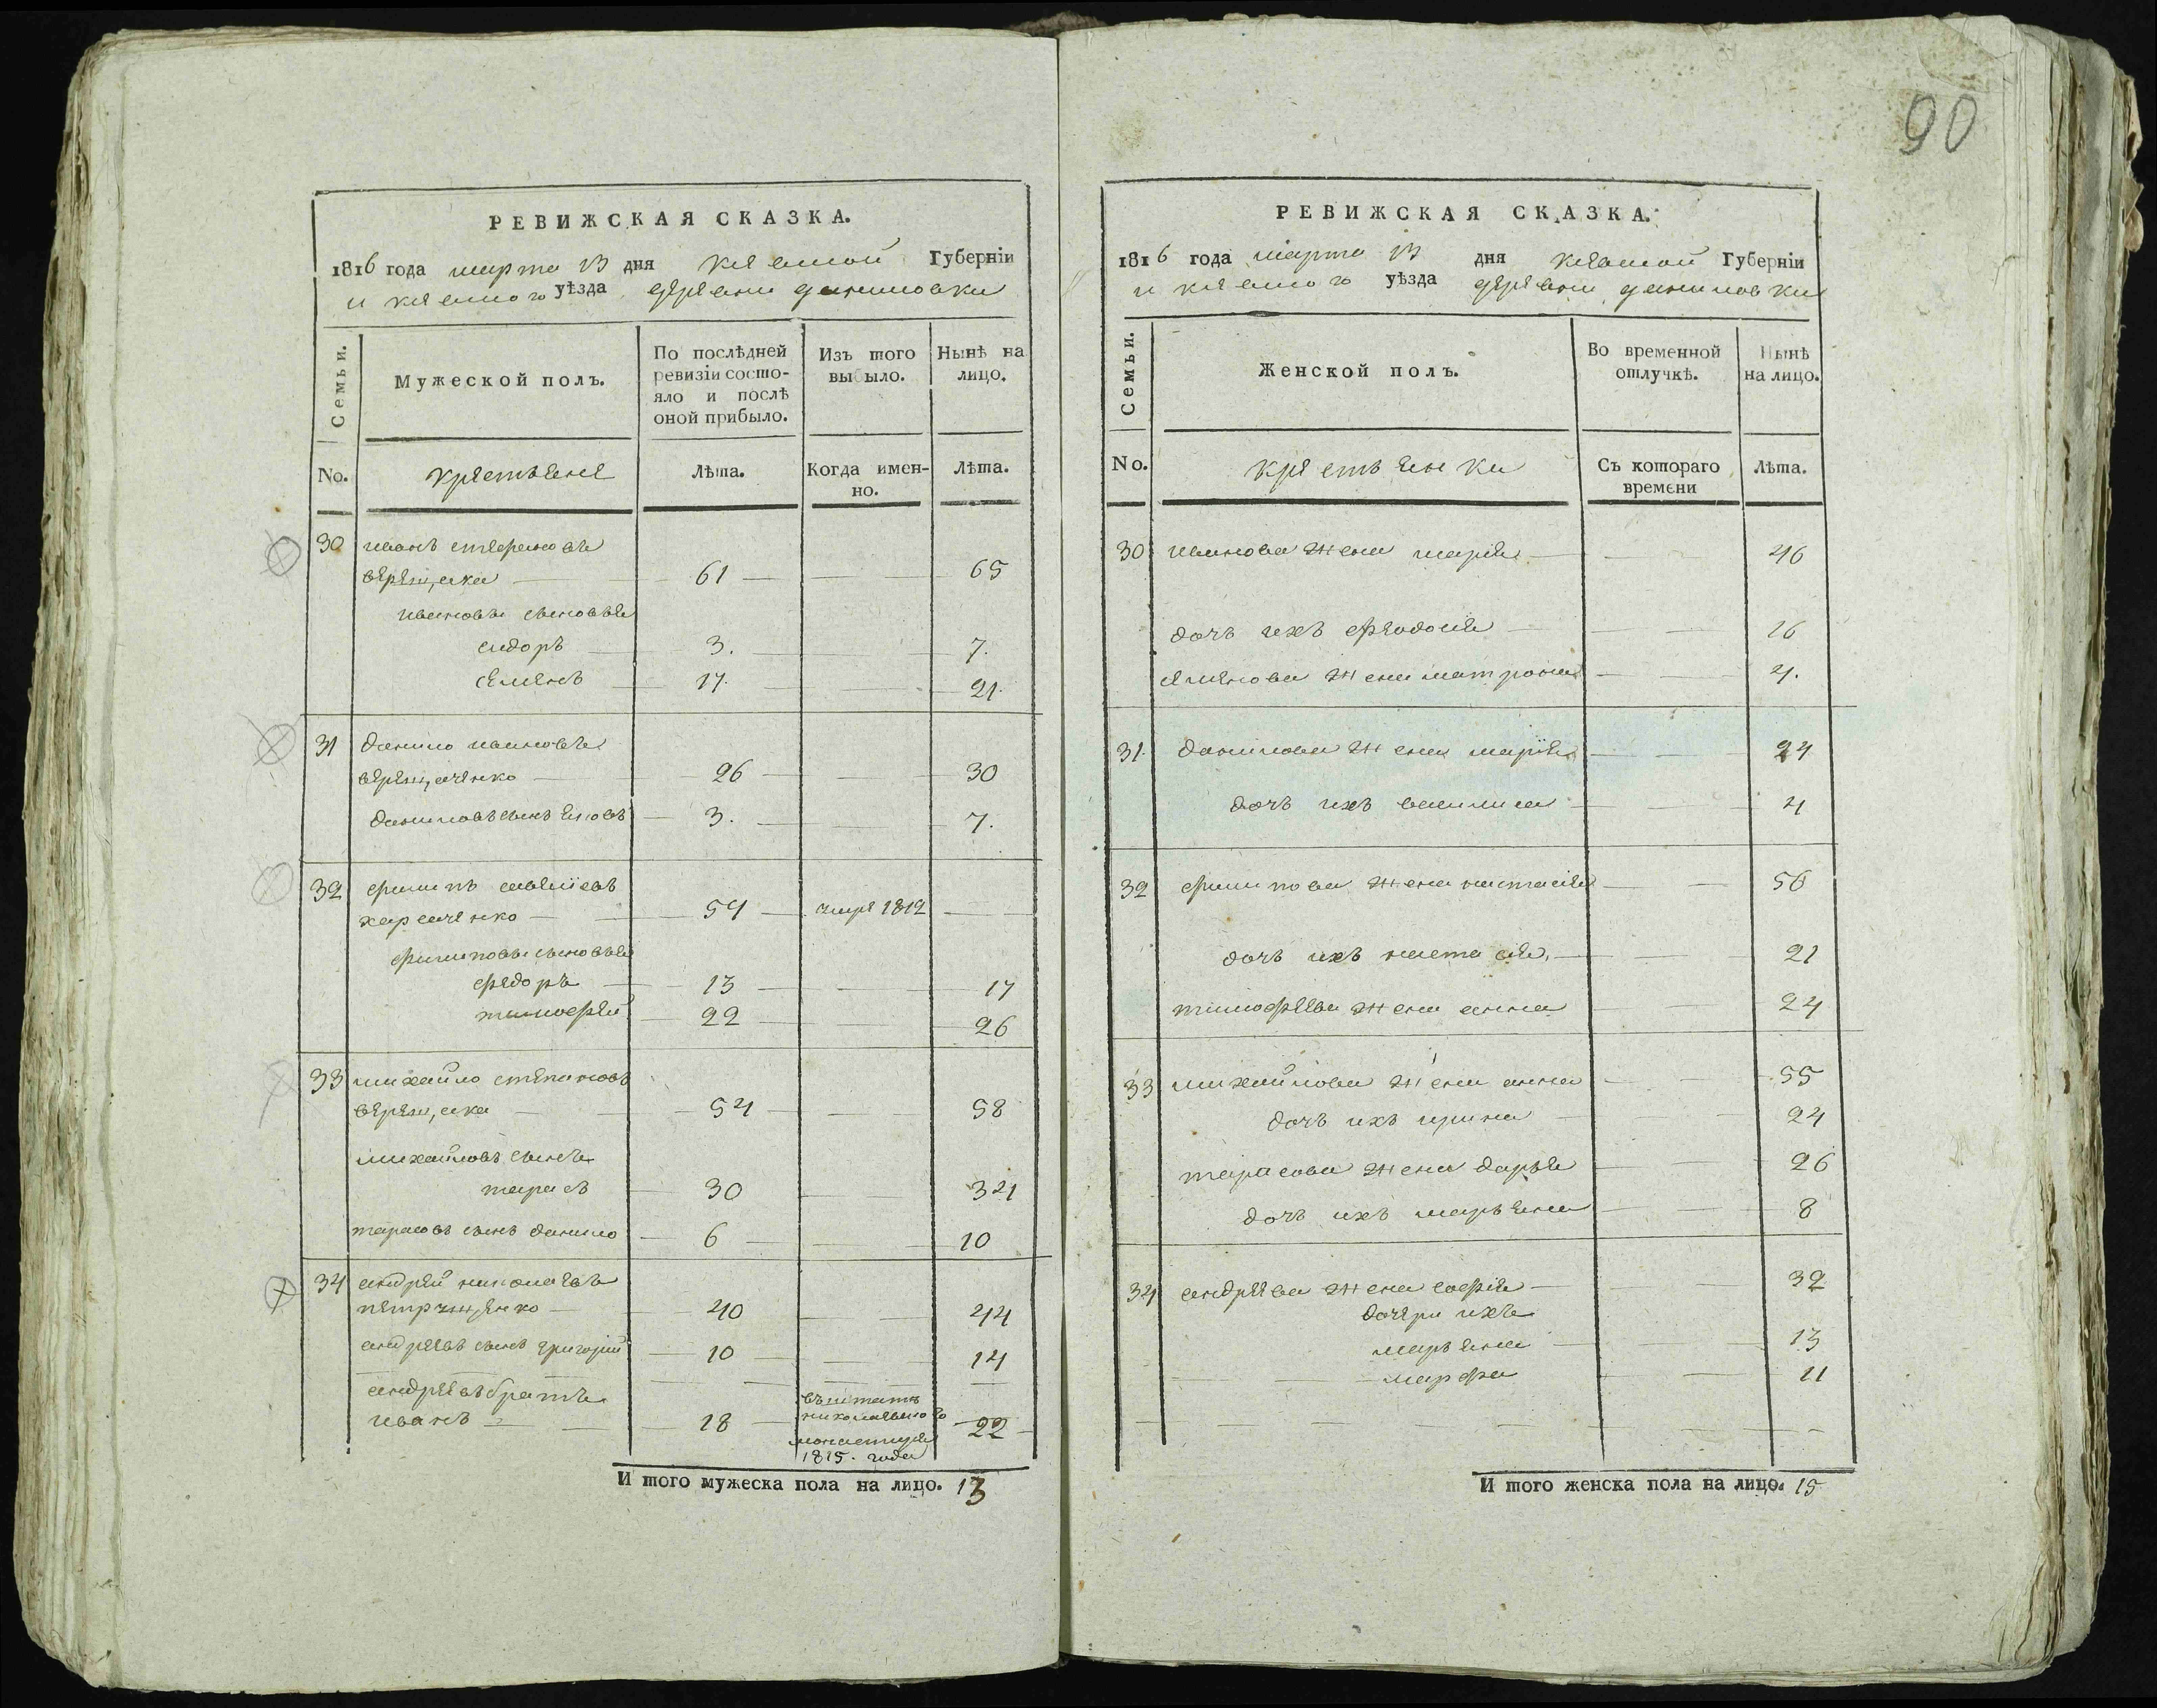 90
РЕВИЖСКАЯ СКАЗКА.
1816 года марта 13 дня Киевской Губерніи
и киевского уѣзда деревни даниловки
Семьи.
Мужеской полъ.
По послѣдней ревизіи состояло и послѣ оной прибыло.
Изъ того выбыло.
Нынѣ на лицо.
No.
крестьяне
Лѣта.
Когда именно.
Лѣта.
30 иванъ
61 65
ивановы сыновья
сидоръ 3. 7.
семенъ 17. 21.
31 данило ивановъ
26 30
даниловъ сынъ 3. 7.
32 филипъ
харсченко 54 умре 1812
филиповы сыновья
федоръ 13 17
тимофей 22 26
33 михайло степановъ
54 58
михайловъ сынъ
тарасъ 30 34
тарасовъ сынъ данило 6 10
34 андрей николаевъ
40 44
андреевъ сынъ григорий 10 14
андреевъ братъ
иванъ 18 22
николаевского
монастыря
1815. года
И того мужеска пола на лицо. 13
РЕВИЖСКАЯ СКАЗКА.
1816 года марта 13 дня Киевской Губерніи
и киевского уѣзда деревни даниловки
Семьи.
Женской полъ.
Во временной отлучкѣ.
Нынѣ на лицо.
No.
крестьянки
Съ котораго времени
Лѣта.
30 иванова жена марія 46
дочь ихъ феодосія 16
семенова жена матрона
31. данилова жена марія 24
дочь ихъ василиса 4
32 филипова жена настасія 56
дочь ихъ настасія 21
тимофеева жена анна 24
33 михайлова жена анна 55
дочь ихъ ирина 24
тарасова жена дарья 26
дочь ихъ марьяна 8
34 андреева жена софія 32
дочери ихъ
марьяна 13
марфа 11
И того женска пола на лицо. 15